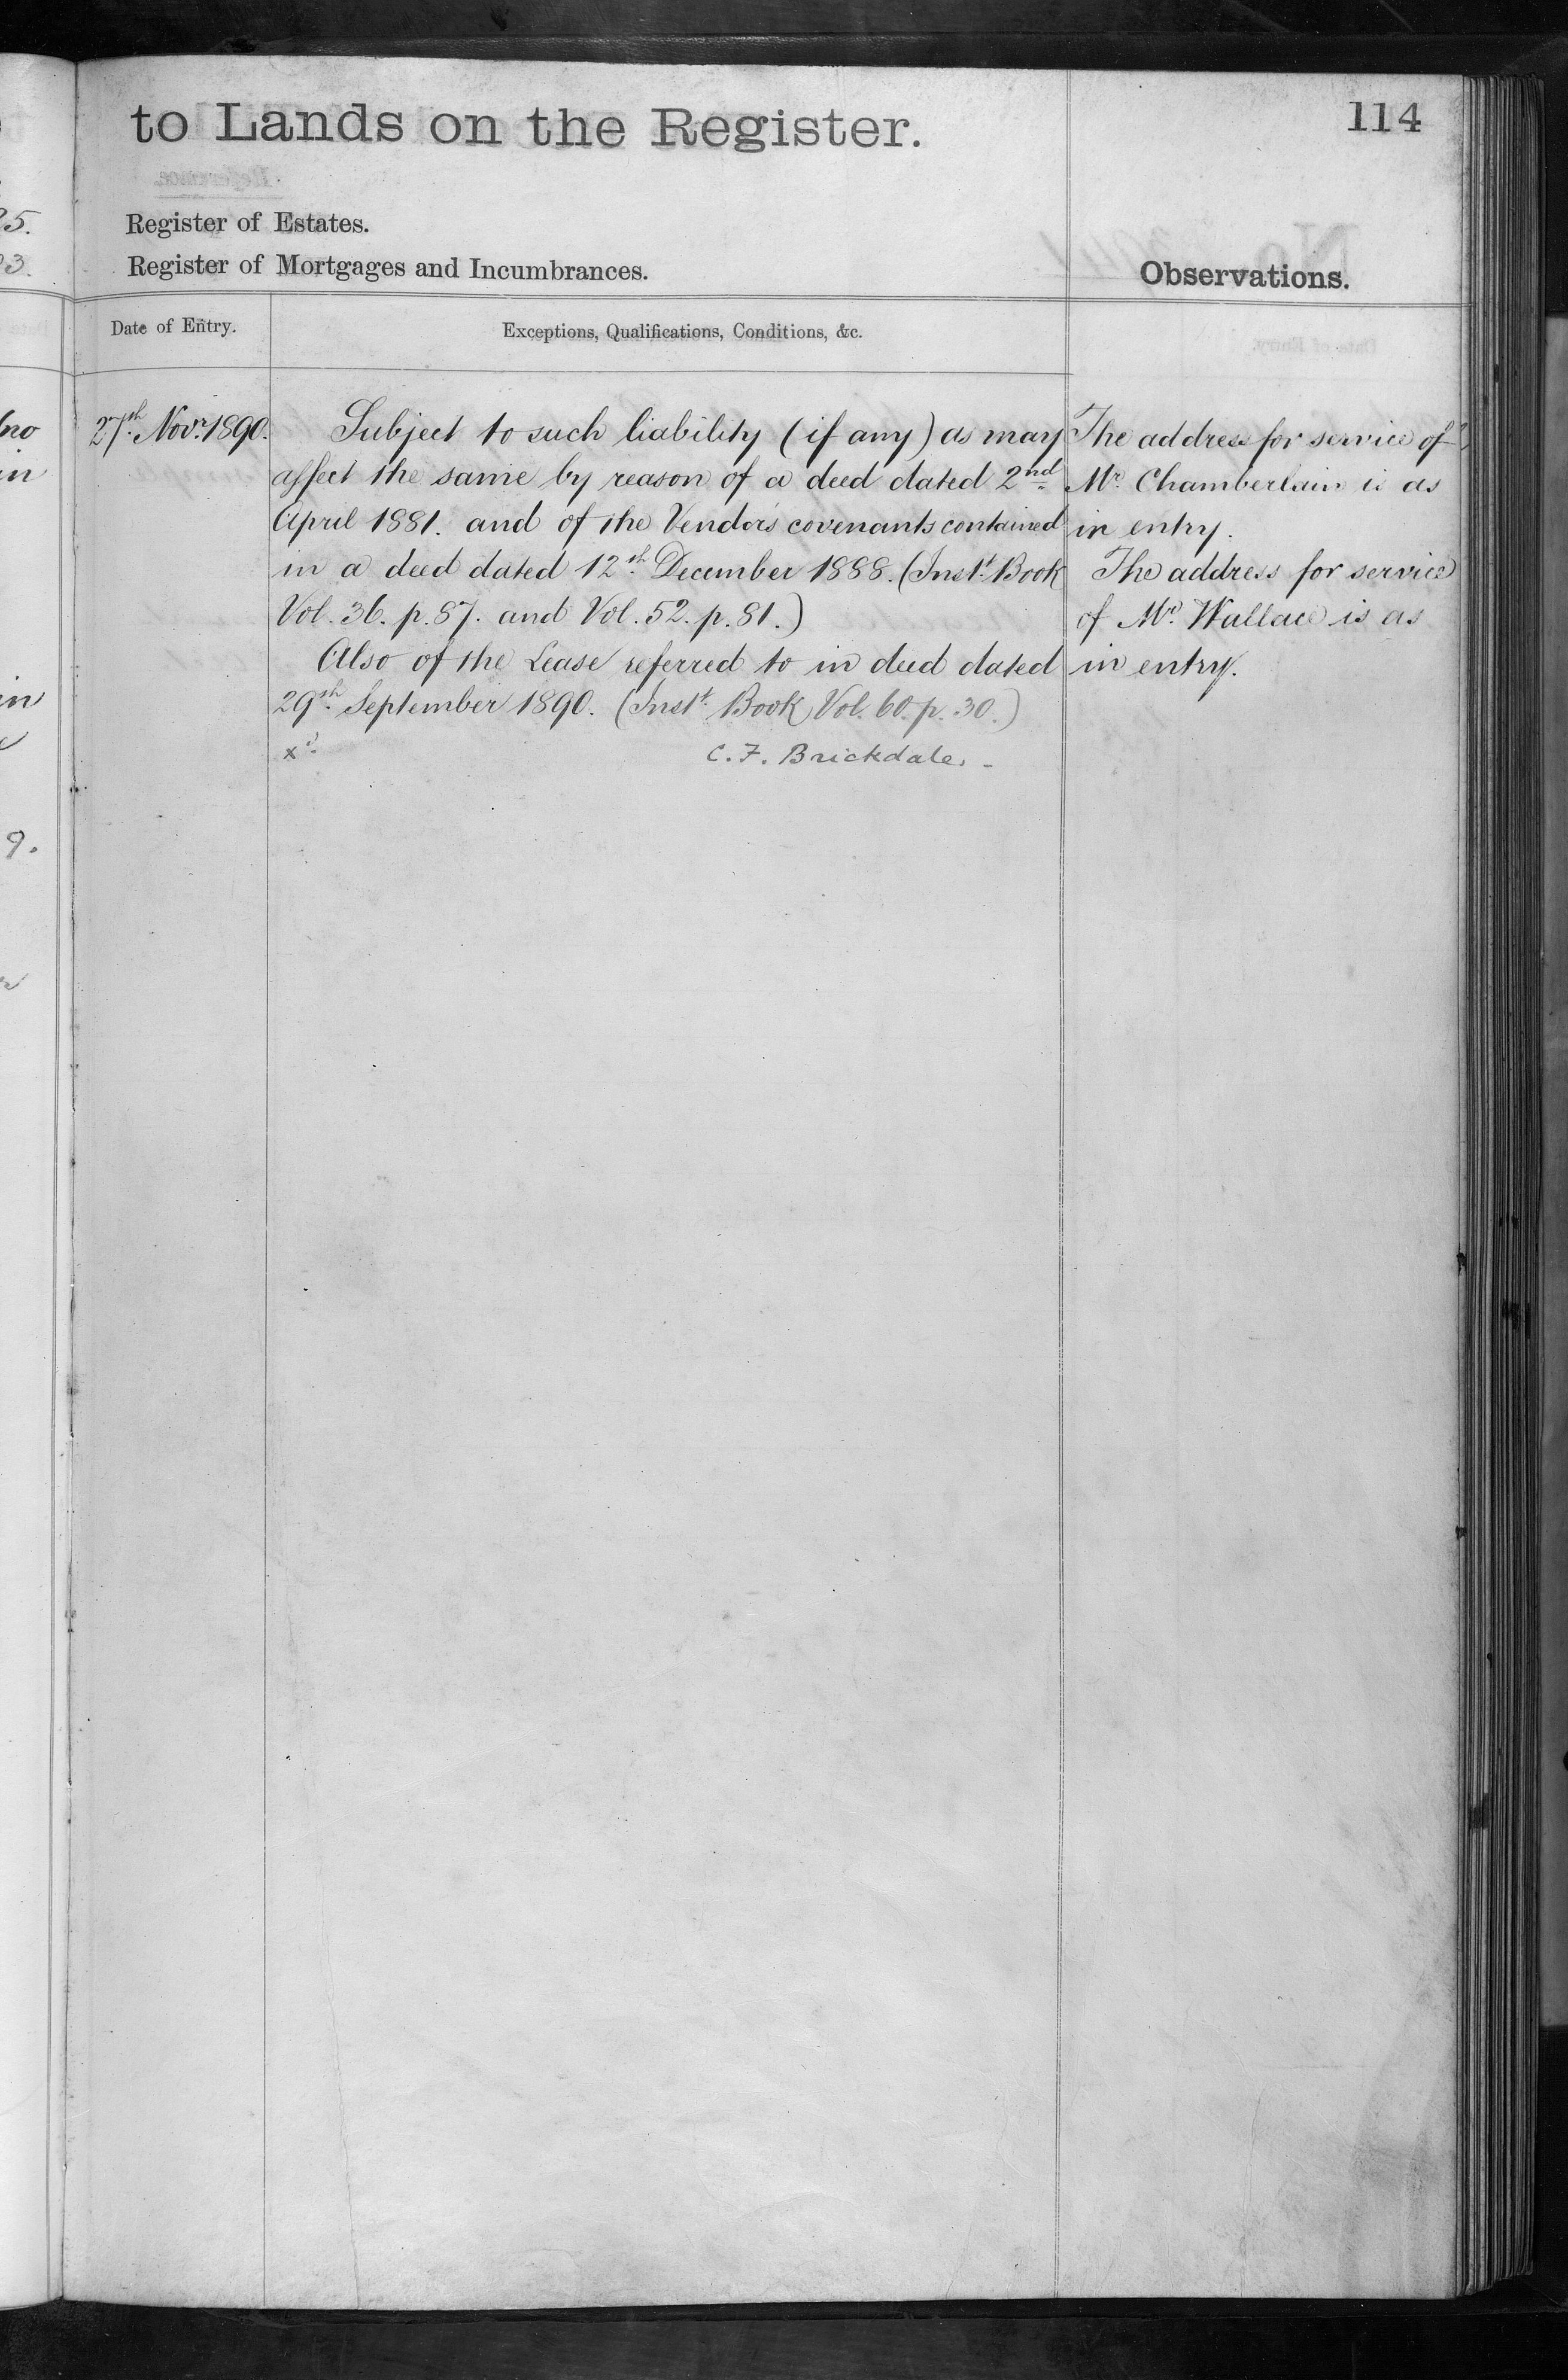 to Lands on the Register.
114
Register of Estates.
Register of Mortgages and Incumbrances.
Observations.
Date of Entry.
Exceptions, Qualifications, Conditions, &c.
27th Novr. 1890.
Subject to such liability (if any) as may
affect the same by reason of a deed dated 2nd
April 1881. and of the Vendor's covenants contained
in a deed dated 12th December 1888. (Inst. Book
Vol. 36. p. 87. and Vol. 52. p. 81.)
Also of the Lease referred to in deed dated
29th September 1890. (Inst. Book Vol. 60. p. 30.)
C. F. Brickdale.
The address for service of
Mr. Chamberlain is as
in entry.
The address for service
of Mr. Wallace is as
in entry.